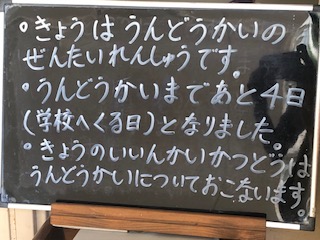 ・きょうはうんどうかいの
ぜんたいれんしゅうです。
・うんどうかいまであと4日
(学校へくる日)となりました。
・きょうのいいんかいかつどうは
うんどうかいについておこないます。